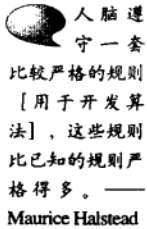 人脑遵
守一套
比较严格的规则
［用于开发算
法］，这些规则
比已知的规则严
格得多。——
Maurice Halstead